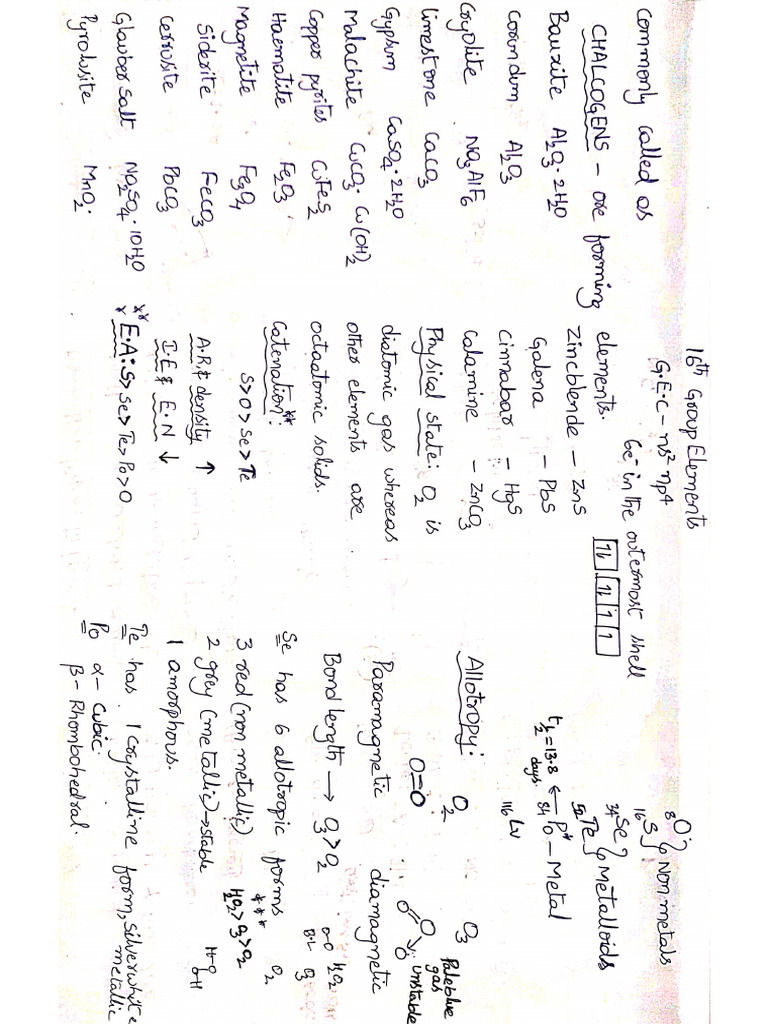 16th Group Elements
G.E.C - ns² np⁴
6e⁻ in the outermost shell
1l 1l 1 1
₈O
₁₆S } Non metals
₃₄Se
₅₂Te } Metalloids
t½ = 13.8 days ← ₈₄Po* - Metal
₁₁₆Lv
commonly called as
CHALCOGENS - ore forming elements.
Bauxite Al₂O₃·2H₂O
Corundum Al₂O₃
Cryolite Na₃AlF₆
limestone CaCO₃
Gypsum CaSO₄·2H₂O
Malachite CuCO₃·Cu(OH)₂
Copper pyrites CuFeS₂
Haematite Fe₂O₃
Magnetite Fe₃O₄
Siderite FeCO₃
Cerrosite PbCO₃
Glauber Salt Na₂SO₄·10H₂O
Pyrolusite MnO₂.
Zincblende - ZnS
Galena - PbS
Cinnabar - HgS
Calamine - ZnCO₃
Physical state: O₂ is
diatomic gas whereas
other elements are
octaatomic solids.
Catenation**:
S>O>Se>Te
A.R & density ↑
I.E & E.N ↓
** E.A: S>Se>Te>Po>O
Allotropy: O₂ O₃
Pale blue gas
O=O
O O O → unstable
Paramagnetic diamagnetic
Bond length → O₃ > O₂
O-O H₂O₂
B.L O₃
O₂
Se has 6 allotropic forms
3 red (non metallic)
2 grey (metallic) → stable
1 amorphous.
***
H₂O₂ > O₃ > O₂
H-O
OH
Te has 1 crystalline form, silver white
metallic
Po α - Cubic.
β - Rhombohedral.